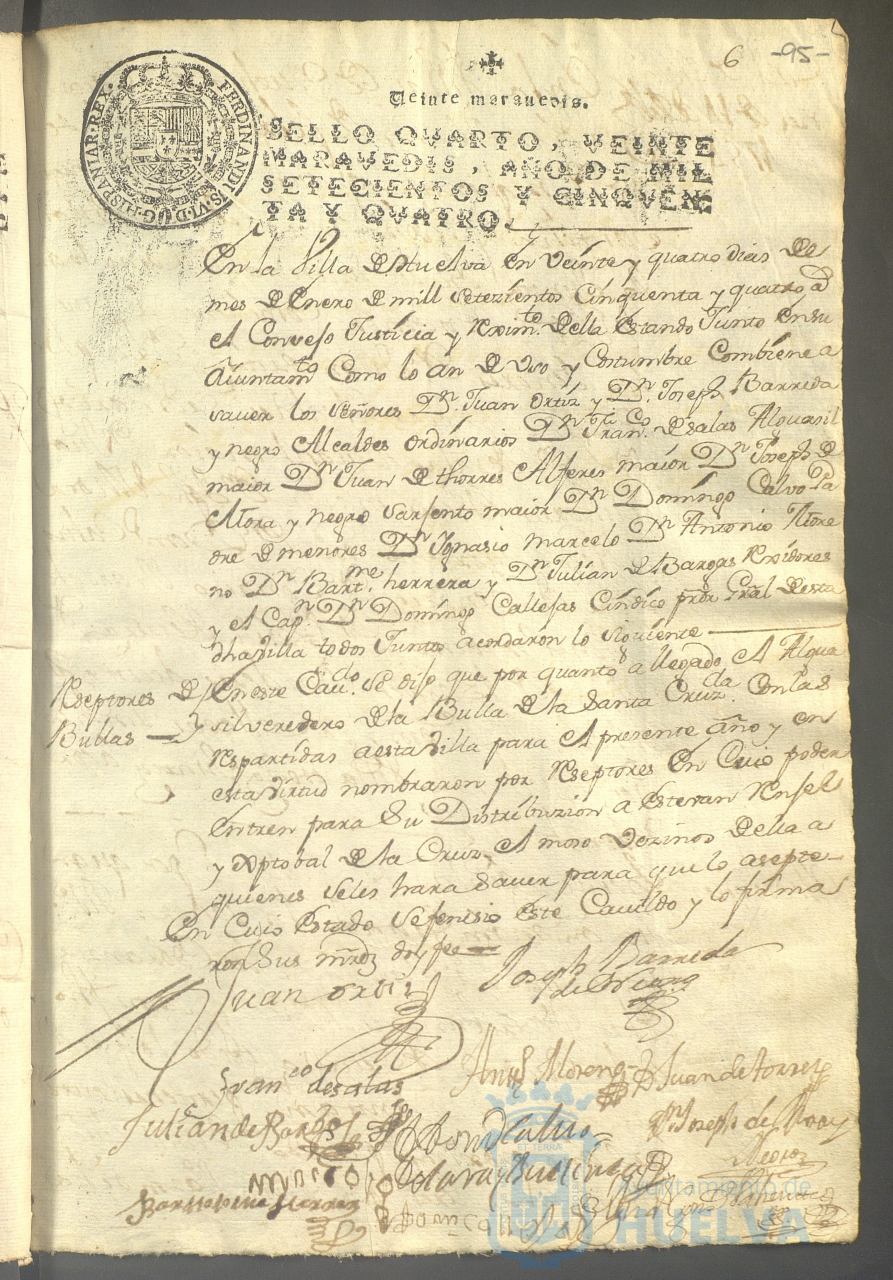 6 -95-
Veinte maravedis.
FERDINANDUS·VI·D·G·HISPANIAR·REX·
SELLO QVARTO, VEINTE
MARAVEDIS, AÑO DE MIL
SETECIENTOS Y CINQVEN
TA Y QUATRO.
En la Villa de Huelva en Veinte y quatro dias de
mes de Enero de mill Setezientos Cinquenta y quatro a
el Consejo Justicia y Reximto della Estando Junto en su
Aiuntamto Como lo an de Uso y Costumbre Combiene a
saver los Señores Dn Juan Ortiz y Dn Joseph Barreda
y negro Alcaldes ordinarios Dn Franco de salas Alguasil
maior Dn Juan de thorres Alferes maior Dn Joseph de
Mora y negro Sarjento maior Dn Domingo Calvo Pa
dre de menores Dn Ygnasio marcelo Dn Antonio More
no Dn Barme herrera y Dn Julian de Bargas Rexidores
y el Capn Dn Domingo Callejas Cindico pror Gral desta
dha Villa todos Juntos acordaron lo siguiente
Reseptores de
Bullas
En este Cavdo Se dijo que por quanto a llegado el Algua
sil veredero de la Bulla de la Santa Cruzda Con las
Repartidas a esta Villa para el presente año y en
esta Virtud nombraron por Reseptores En Cuio poder
Entren para Su Distribuzion a Estevan Rensel
y Xptobal de la Cruz el moso Vezinos della a
quienes Se les hara Saver para que lo asepte
En Cuio Estado Se fenisio Este Cavildo y lo firma
ron Sus mrdz doy fee
Juan ortiz
Joseph Barreda
de Negro
Franco de salas
Anto Moreno
Dn Juan de torres
Julian de Bargas
Dn Joseph de Mora y
Negro
Bartholome Herrera
ET TERRÆ
Ayuntamiento de
HUELVA